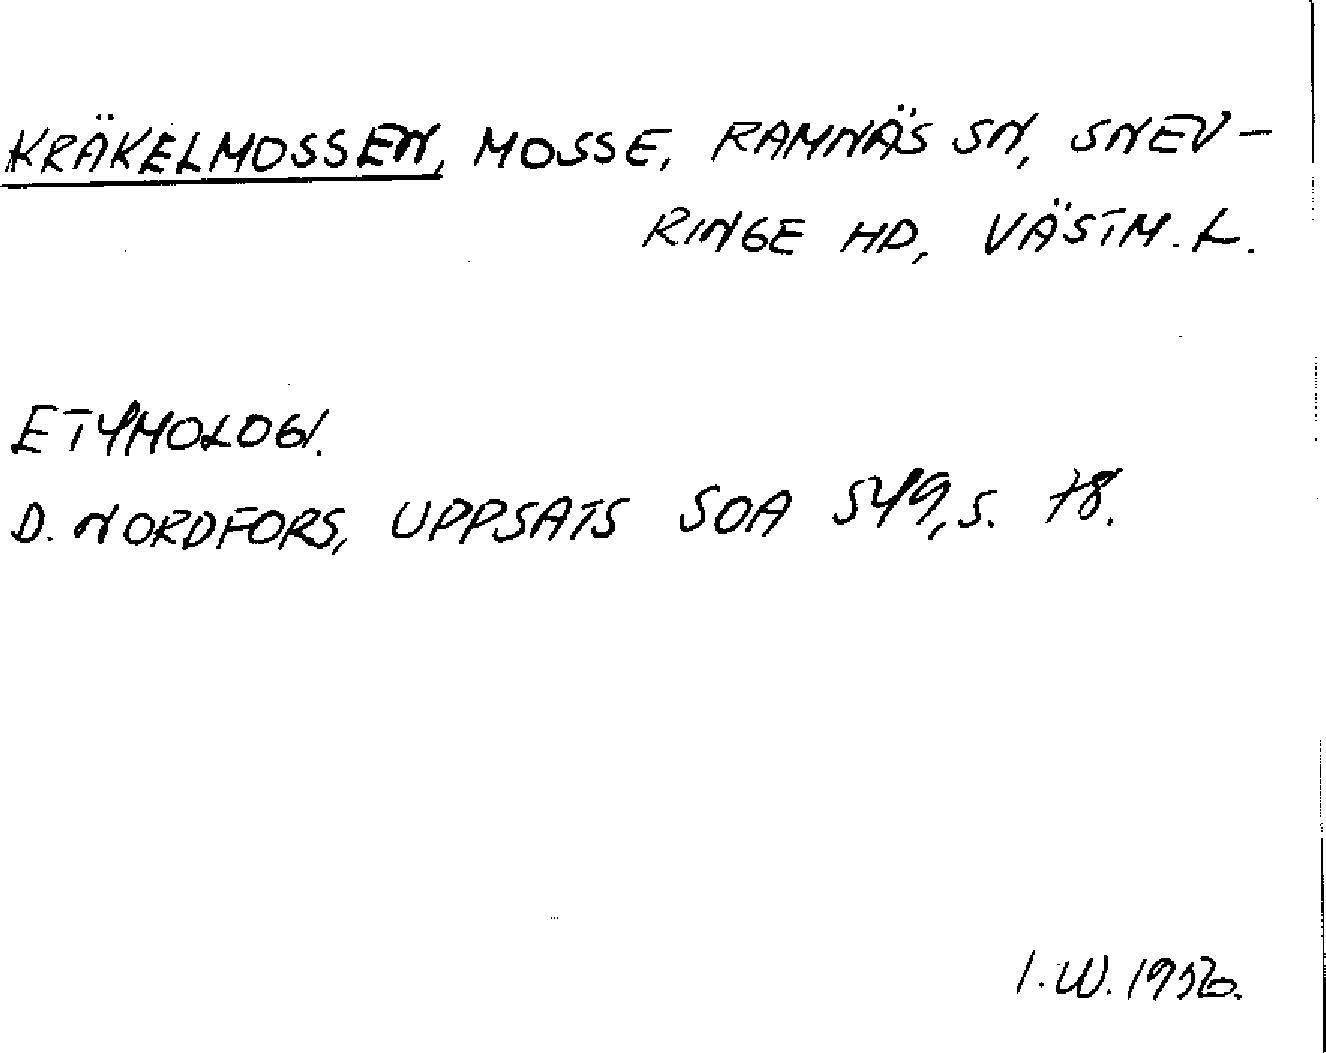 KRÄKELMOSSEN, MOSSE, RAMNÄS SN, SNEV-
RINGE HD, VÄSTM. L.
ETYMOLOGI.
D. NORDFORS, UPPSATS SOA 549, S. 78.
I. W. 1956.